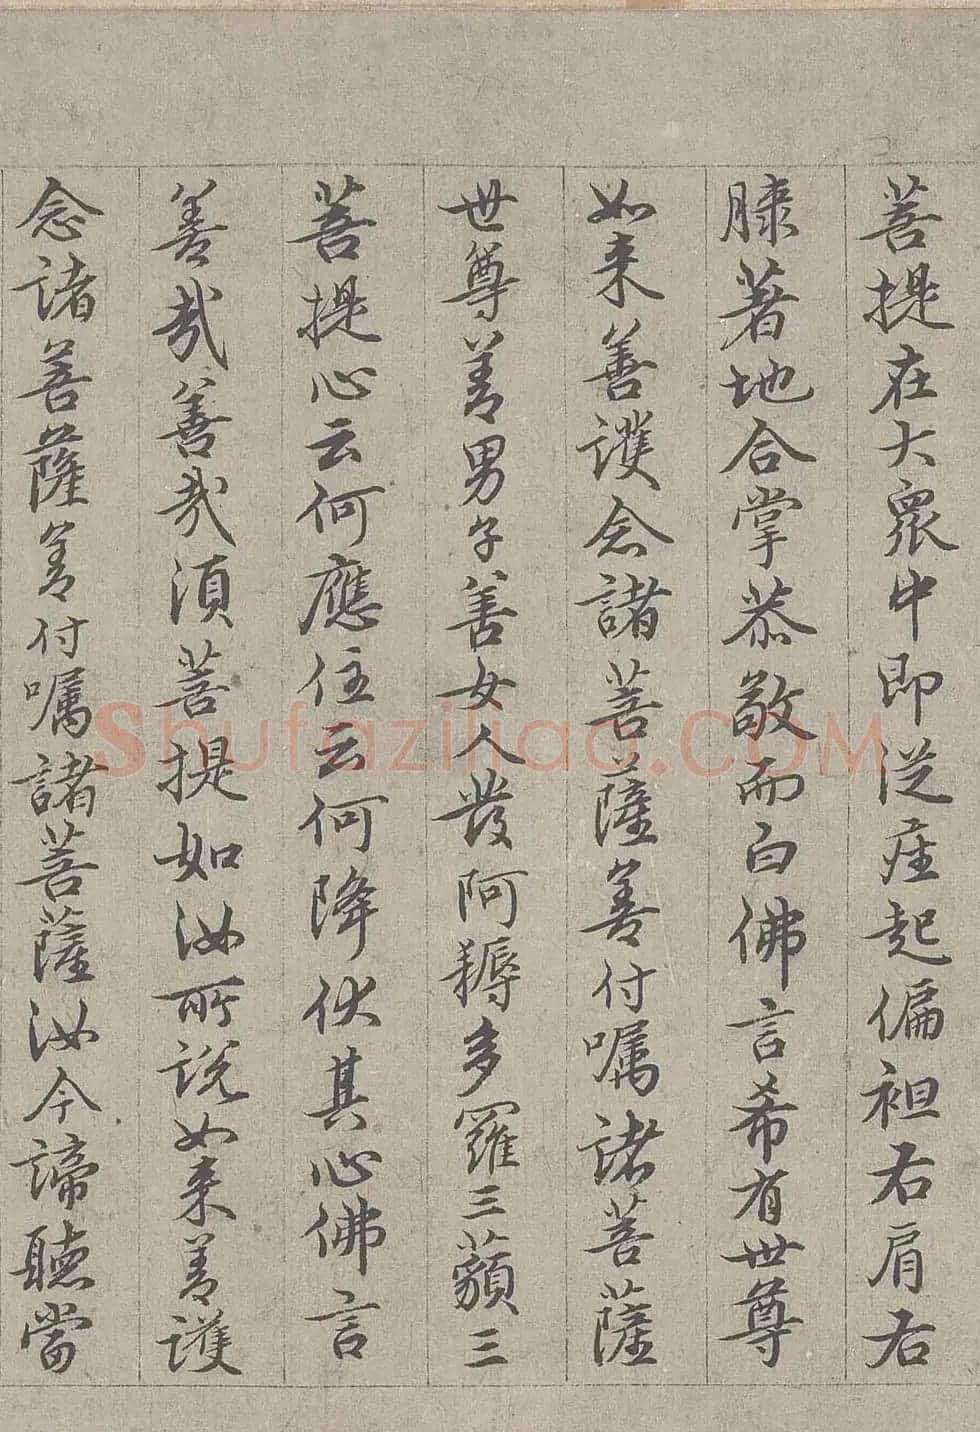 菩提在大眾中即從座起偏袒右肩右
膝著地合掌恭敬而白佛言希有世尊
如来善護念諸菩薩善付嘱諸菩薩
世尊善男子善女人發阿耨多羅三藐三
菩提心云何應住云何降伏其心佛言
善哉善哉須菩提如汝所說如来善護
念諸菩薩善付嘱諸菩薩汝今諦聽當
Shufaziliao.COM